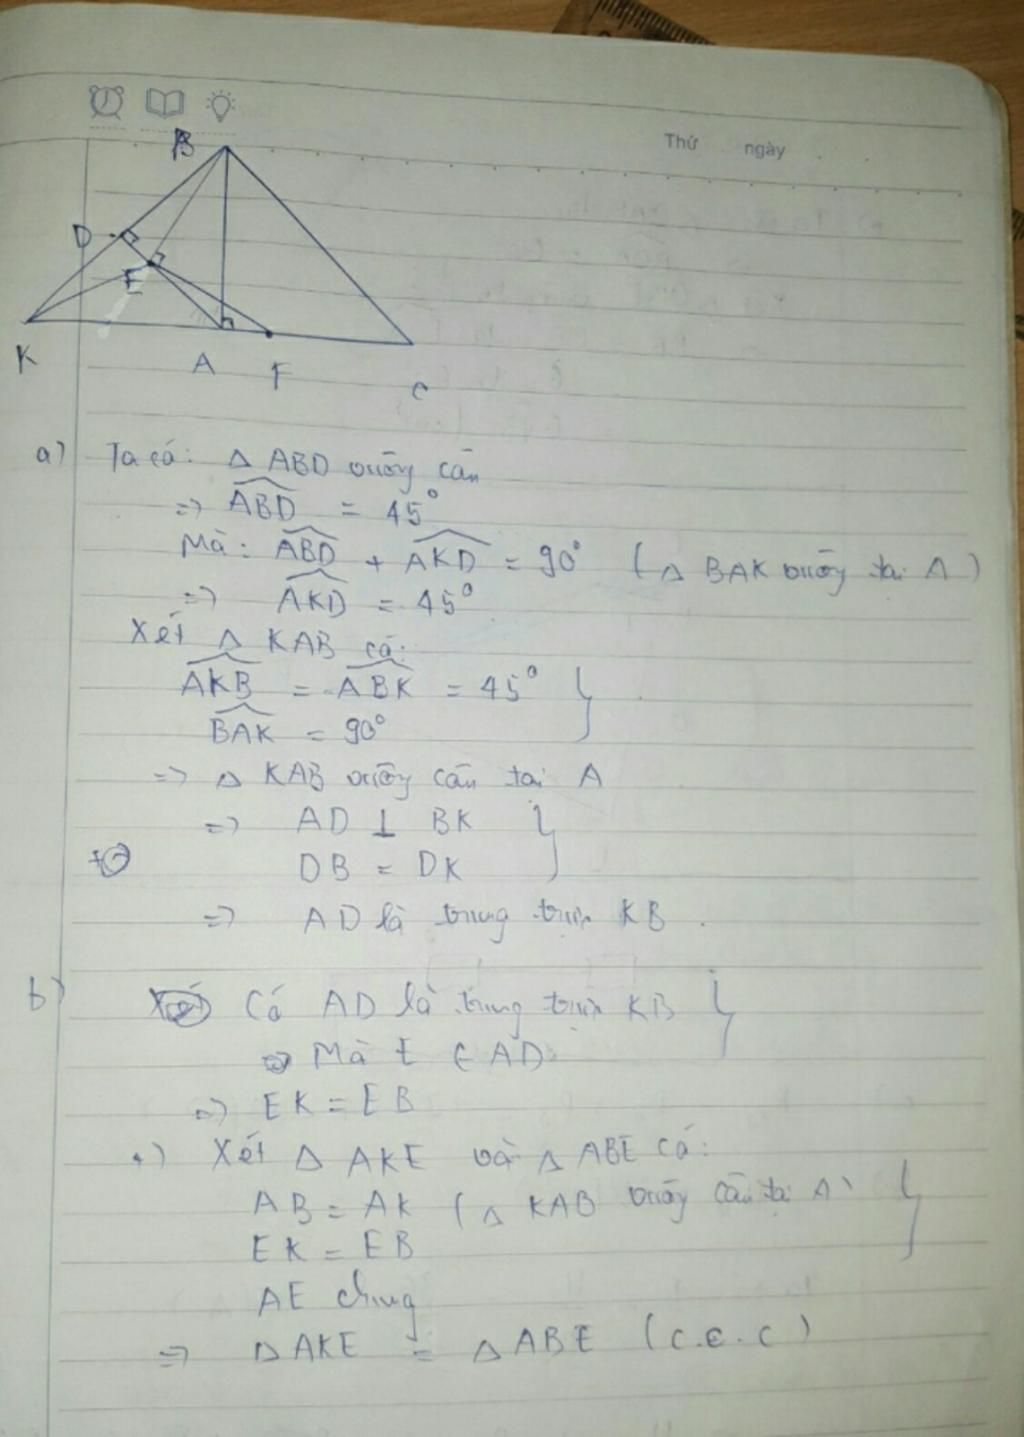 Thứ ngày
B
D
E
K
A
F
C
a) Ta có: Δ ABD vuông cân
=> ABD = 45°
Mà: ABD + AKD = 90° (Δ BAK vuông tại A)
=> AKD = 45°
Xét Δ KAB có:
AKB = ABK = 45°
BAK = 90°
=> Δ KAB vuông cân tại A
=> AD ⊥ BK
DB = DK
=> AD là trung trực KB.
b) Có AD là trung trực KB
Mà E ∈ AD
=> EK = EB
+) Xét Δ AKE và Δ ABE có:
AB = AK (Δ KAB vuông cân tại A)
EK = EB
AE chung
=> Δ AKE = Δ ABE (c.c.c)